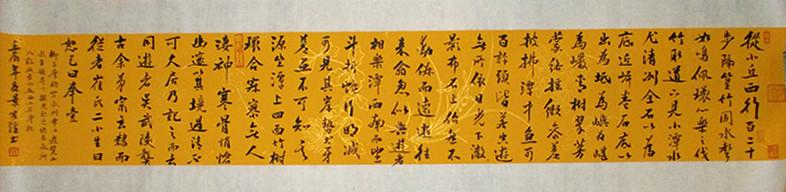 從小丘西行百二十
步隔篁竹聞水聲
如鳴佩環心樂之伐
竹取道下見小潭水
尤清冽全石以為
底近岸卷石底以
出為坻為嶼為嵁
為巖青樹翠蔓
蒙絡搖綴參差
披拂潭中魚可
百許頭皆若空遊
無所依日光下澈
影布石上佁然不
動俶爾遠逝往
來翕忽似與遊者
相樂潭西南而望
斗折蛇行明滅
可見其岸勢犬牙
差互不可知其
源坐潭上四面竹樹
環合寂寥無人
淒神寒骨悄愴
幽邃以其境過清不
可久居乃記之而去
同遊者吳武陵龔
古余弟宗玄隸而
從者崔氏二小生曰
恕己曰奉壹